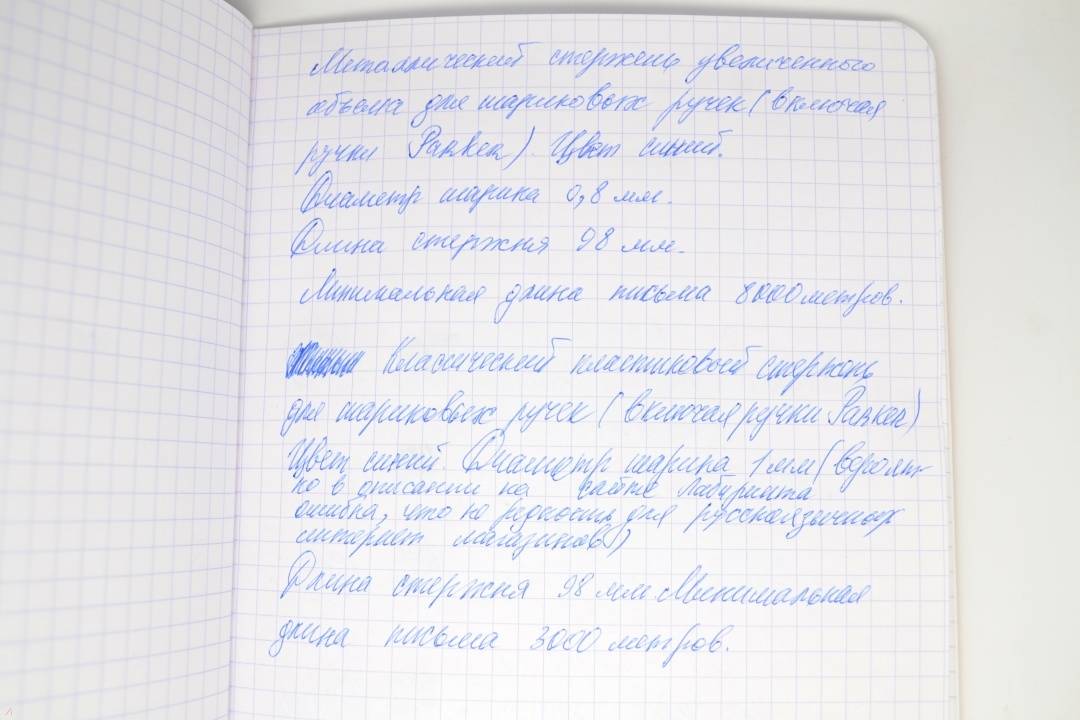 Металлический стержень увеличенного
объема для шариковых ручек (включая
ручки Parker). Цвет синий.
Диаметр шарика 0,8 мм.
Длина стержня 98 мм.
Минимальная длина письма 8000 метров.
Классический пластиковый стержень
для шариковых ручек (включая ручки Parker)
Цвет синий. Диаметр шарика 1 мм (вероят-
но в описании на сайте Лабиринта
ошибка, что не редкость для русскоязычных
интернет магазинов)
Длина стержня 98 мм Минимальная
длина письма 3000 метров.